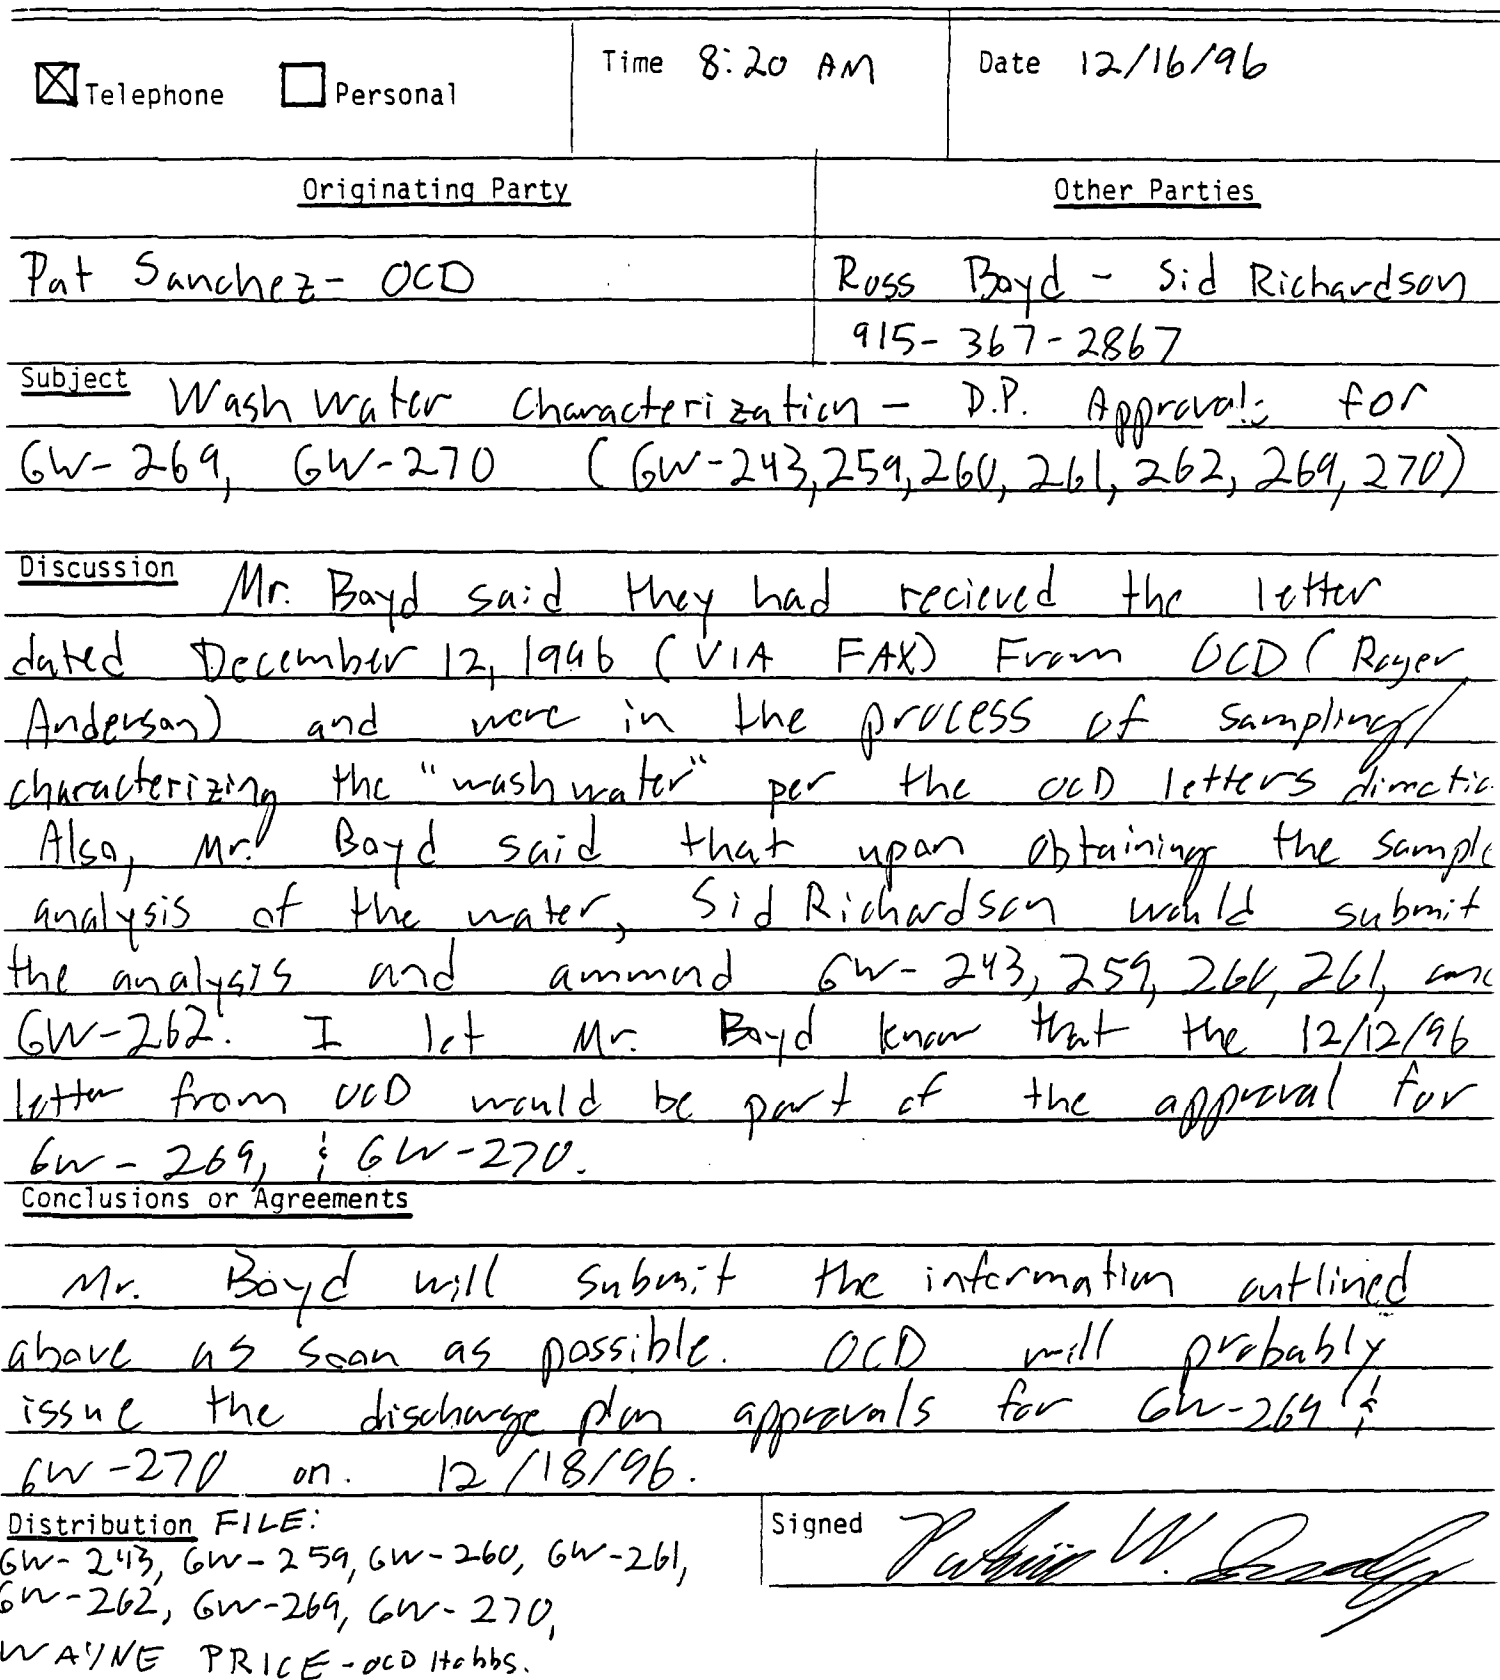 Telephone Personal Time 8:20 AM Date 12/16/96
Originating Party Other Parties
Pat Sanchez - OCD Ross Boyd - Sid Richardson
915-367-2867
Subject Wash Water Characterization - D.P. Approvals for
GW-269, GW-270 (GW-243, 259, 260, 261, 262, 269, 270)
Discussion Mr. Boyd said they had recieved the letter
dated December 12, 1996 (VIA FAX) From OCD (Roger
Anderson) and were in the process of sampling/
characterizing the "wash water" per the OCD letters directic
Also, Mr. Boyd said that upon obtaining the sample
analysis of the water, Sid Richardson would submit
the analysis and ammend GW-243, 259, 260, 261, and
GW-262. I let Mr. Boyd know that the 12/12/96
letter from OCD would be part of the approval for
GW-269, & GW-270.
Conclusions or Agreements
Mr. Boyd will submit the information outlined
above as soon as possible. OCD will probably
issue the discharge plan approvals for GW-269 &
GW-270 on. 12/18/96.
Distribution FILE: Signed
GW-243, GW-259, GW-260, GW-261,
GW-262, GW-269, GW-270,
WAYNE PRICE - OCD Hobbs.